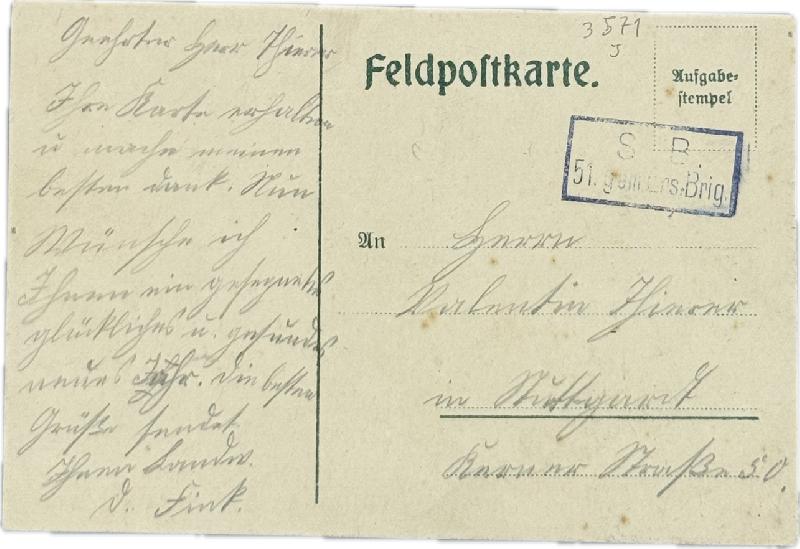 Geehrter Herr Thierer
Ihre Karte erhalten
u mache meinen
besten dank. Nun
Wünsche ich
Ihnen ein gesegnetes
glückliches u. gesundes
neues Jahr. Die besten
Grüße sendet
Ihnen Landw.
D. Fink.
3571
J
Feldpostkarte.
Aufgabe-
stempel
S. B.
51. gem. Ers. Brig.
An Herrn
Valentin Thierer
in Stuttgardt
Kerner Straße 50.